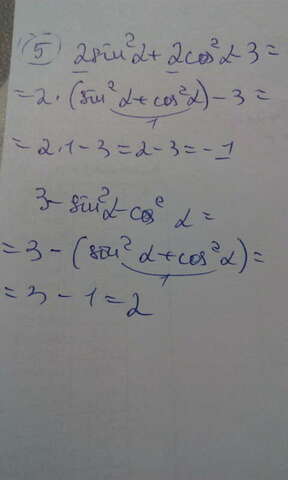 5 2sin²α+2cos²α-3=
=2·(sin²α+cos²α)-3=
1
=2·1-3=2-3=-1
3-sin²α-cos²α=
=3-(sin²α+cos²α)=
1
=3-1=2